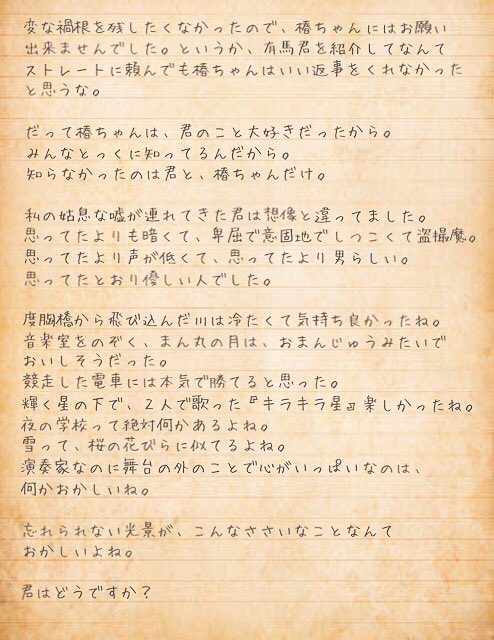 変な禍根を残したくなかったので、椿ちゃんにはお願い
出来ませんでした。というか、有馬君を紹介してなんて
ストレートに頼んでも椿ちゃんはいい返事をくれなかった
と思うな。
だって椿ちゃんは、君のこと大好きだったから。
みんなとっくに知ってるんだから。
知らなかったのは君と、椿ちゃんだけ。
私の姑息な嘘が連れてきた君は想像と違ってました。
思ってたよりも暗くて、卑屈で意固地でしつこくて盗撮魔。
思ってたより声が低くて、思ってたより男らしい。
思ってたとおり優しい人でした。
度胸橋から飛び込んだ川は冷たくて気持ち良かったね。
音楽室をのぞく、まん丸の月は、おまんじゅうみたいで
おいしそうだった。
競走した電車には本気で勝てると思った。
輝く星の下で、２人で歌った『キラキラ星』楽しかったね。
夜の学校って絶対何かあるよね。
雪って、桜の花びらに似てるよね。
演奏家なのに舞台の外のことで心がいっぱいなのは、
何かおかしいね。
忘れられない光景が、こんなささいなことなんて
おかしいよね。
君はどうですか？